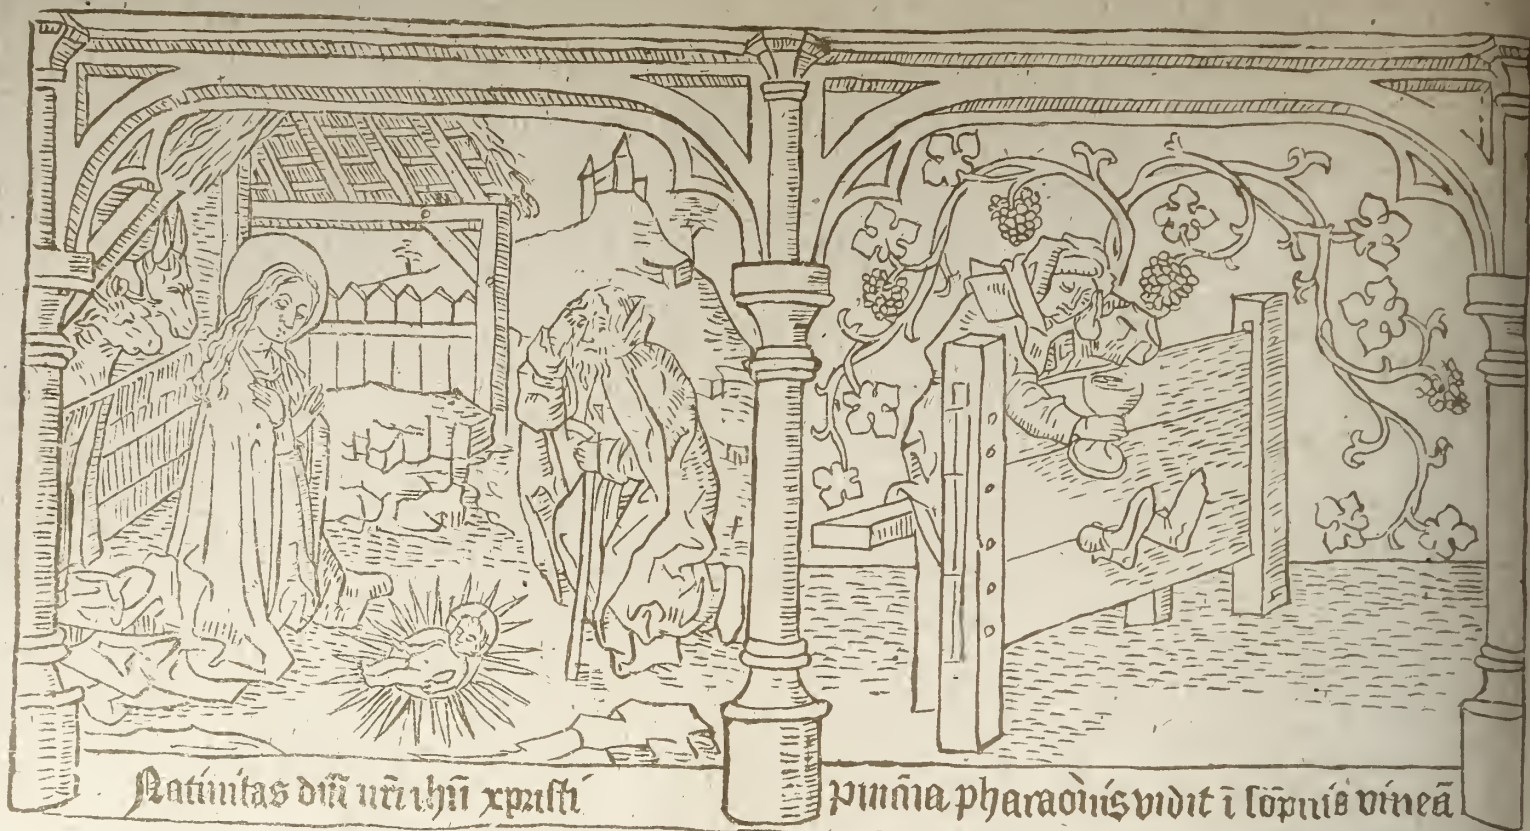 Natiuitas dñi nr̄i ihū xpristi
pincīa pharaonis vidit ī sōpniis vineā